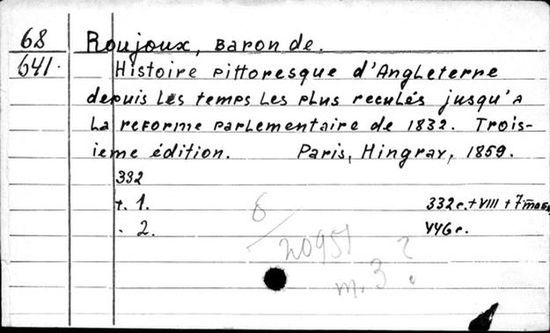 68 Roujoux, Baron de.
641. Histoire pittoresque d'Angleterre
depuis les temps les plus reculés jusqu'a
la reforme parlementaire de 1832. Trois-
ieme édition. Paris, Hingray, 1859.
332
t. 1. 332 c. + VIII + 7
. 2. 446 c.
6
20951
m. 3 ?